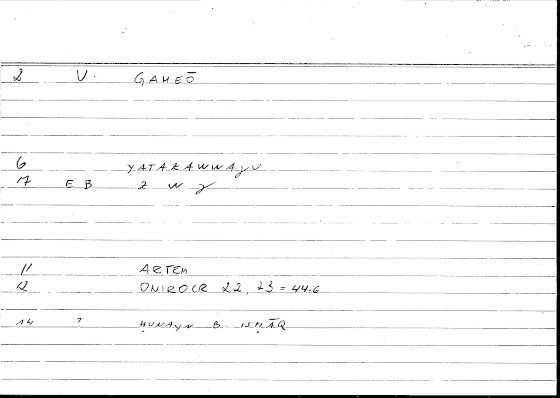 2 V. GAMEŌ
6 YATAZAWWAǦU
17 E B Z W Ǧ
11 ARTEM
12 ONIROCR 22, 23 = 44.6
14 ? ḤUNAYN B. ISḤĀQ